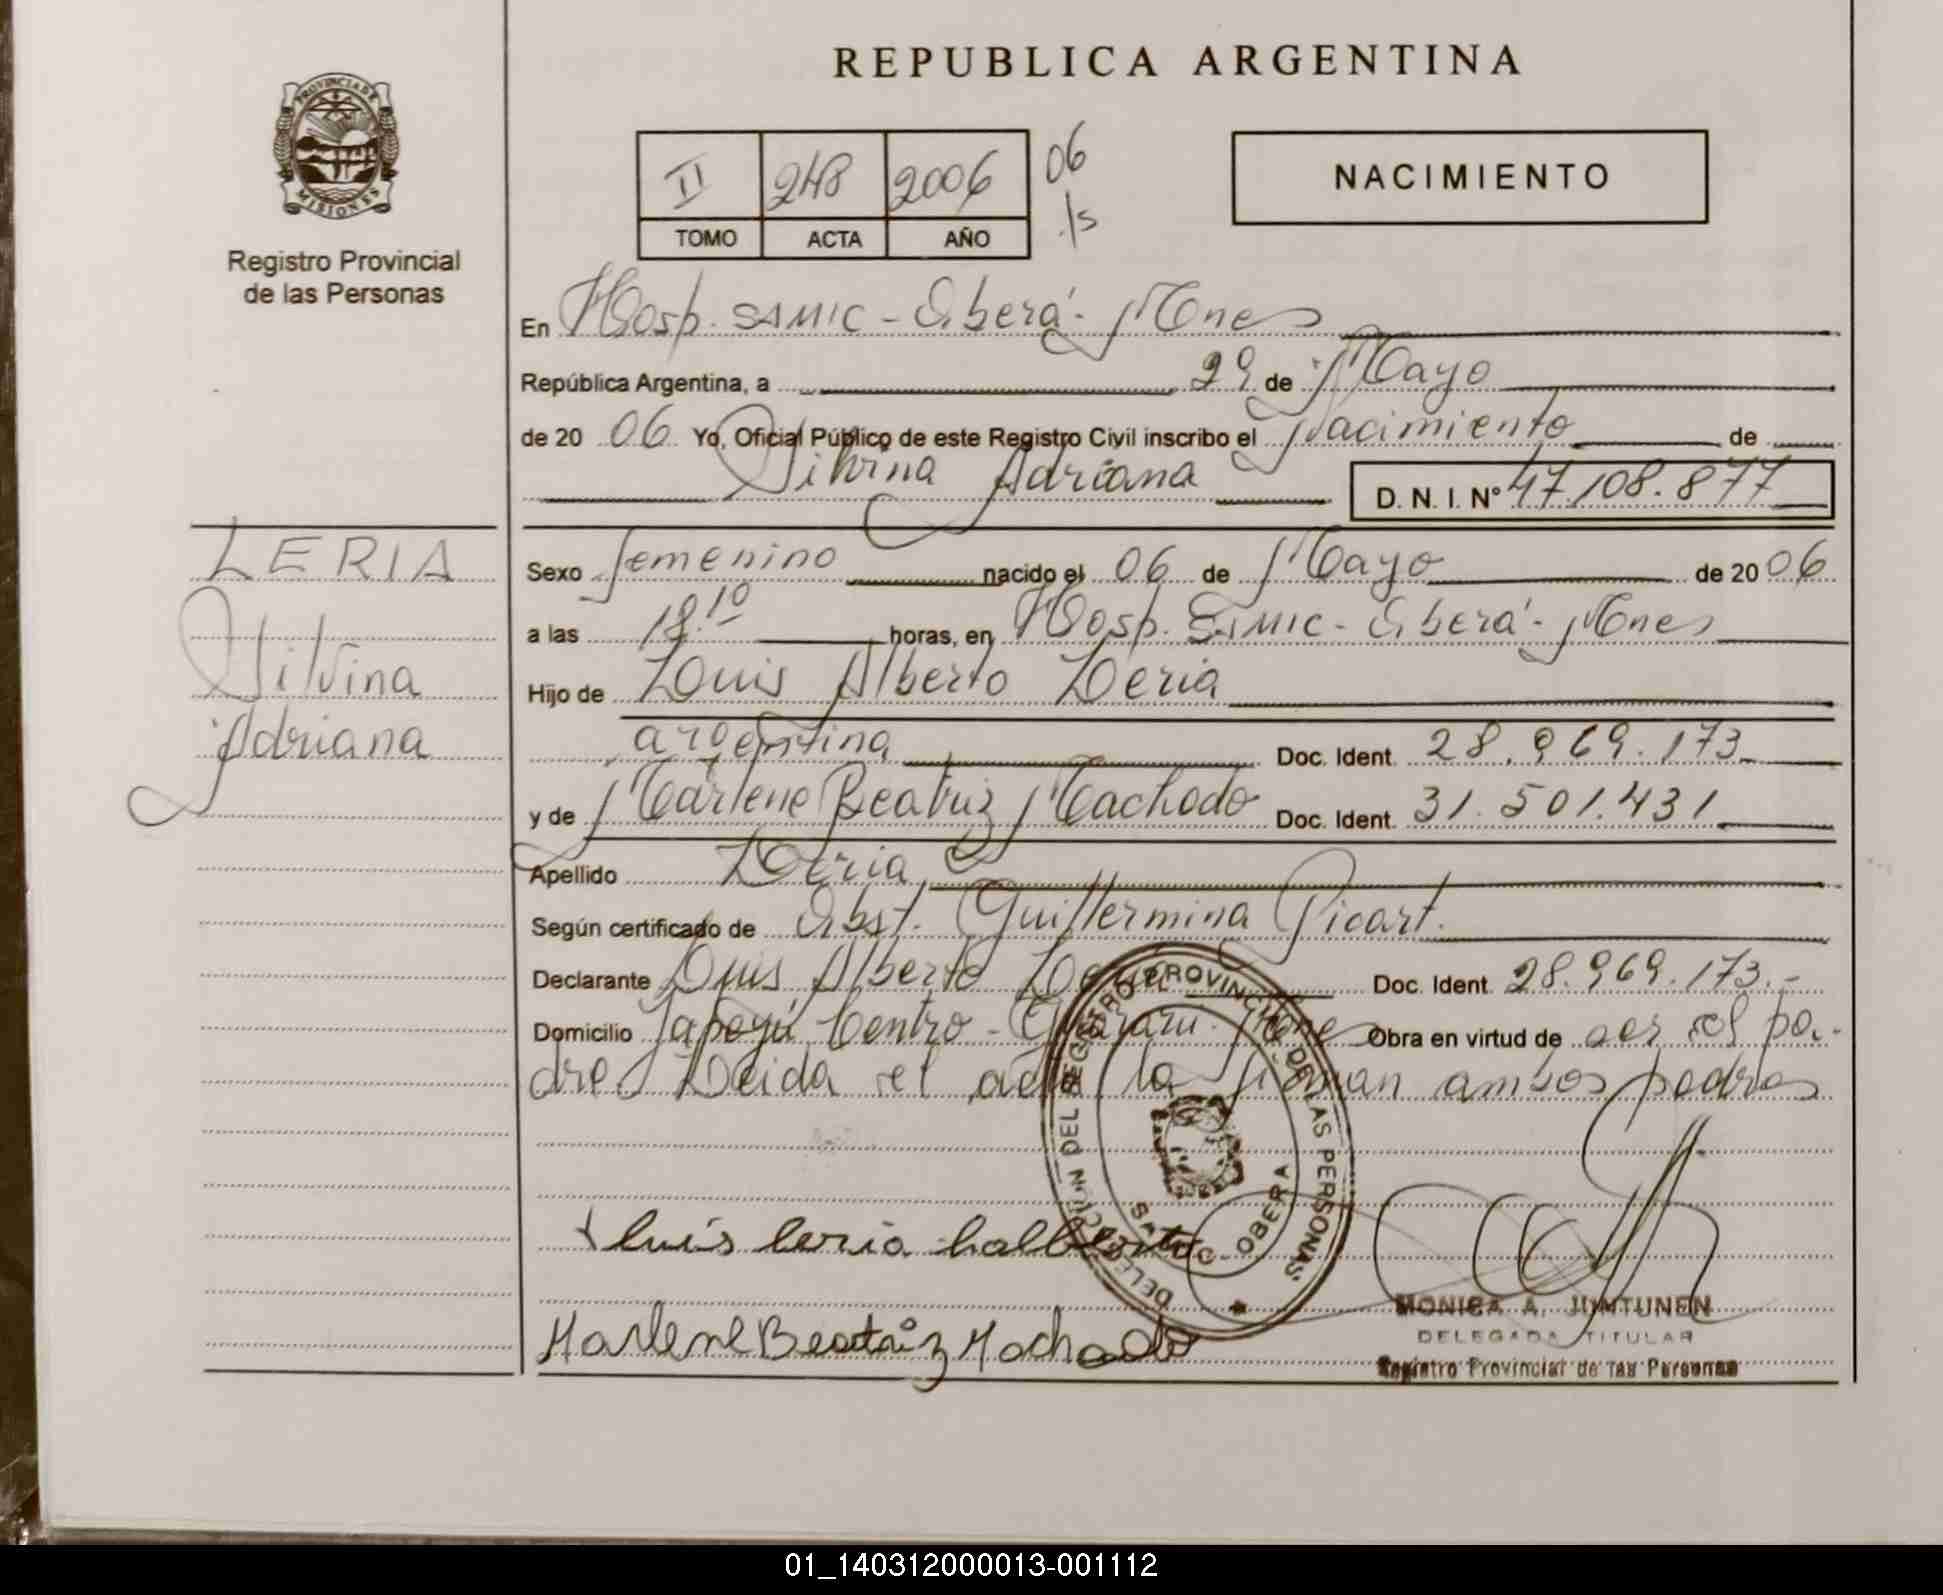 REPUBLICA ARGENTINA
PROVINCIA DE
MISIONES
Registro Provincial
de las Personas
II 248 2006 06
TOMO ACTA AÑO
NACIMIENTO
En Hosp. SAMIC - Oberá - Mnes
República Argentina, a 29 de Mayo
de 20 06 Yo, Oficial Público de este Registro Civil inscribo el Nacimiento de
Silvina Adriana D. N. I. N° 47.108.877
LERIA
Silvina
Adriana
Sexo femenino nacido el 06 de Mayo de 20 06
a las 18.10 horas, en Hosp. SAMIC - Oberá - Mnes
Hijo de Luis Alberto Leria
argentina Doc. Ident. 28.969.173
y de Marlene Beatriz Machado Doc. Ident. 31.501.431
Apellido Leria
Según certificado de Obst. Guillermina Picart.
Declarante Luis Alberto Leria Doc. Ident. 28.969.173.-
Domicilio Yapeyú Centro - Guaraní - Mnes Obra en virtud de ser el pa-
dre Leida el acta la firman ambos padres
DELEGACION DEL REGISTRO PROVINCIAL DE LAS PERSONAS
SAMIC - OBERA
luis leria halberto
Marlene Beatriz Machado
MONICA A. JUNTUNEN
DELEGADA TITULAR
Registro Provincial de las Personas
01_140312000013-001112